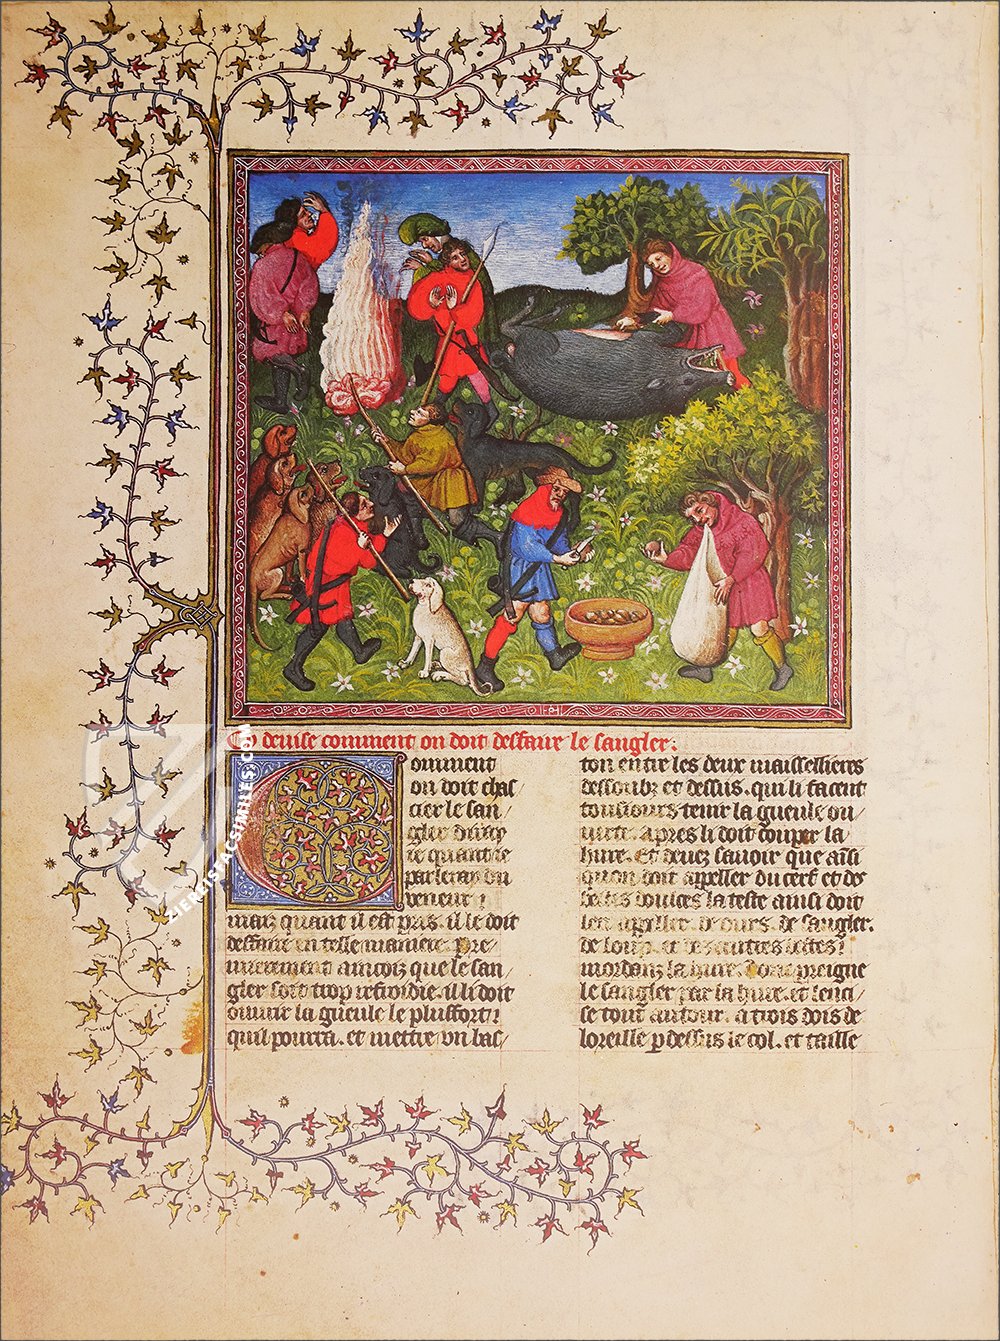 Ci devise comment on doit deffaire le sangler.
Comment
on doit chas/
cier le san/
gler
parleray
veneur
maiz quant il est pris. il le doit
deffaire en telle maniere. pre/
mierement aincoiz que le san/
gler soit trop refroidie. il li doit
ouurir la gueule le plus fort
quil pourra. et mettre vn bas/
ton entre les deux maissellieres
dessoubz et dessus. qui li facent
tousiours tenir la gueule ou/
uerte. apres li doit couper la
hure. et deuez sauoir que aīsi
quon doit appeller du cerf et des
bestes doulces la teste ainsi doit
len appeller de ours. de sangler.
de loup. et de autres bestes
mordanz la hure. Donc preigne
le sangler par la hure. et lenci/
se tout autour. a trois dois de
loreille p dessus le col. et taille
ZIEREISFACSIMILES.COM